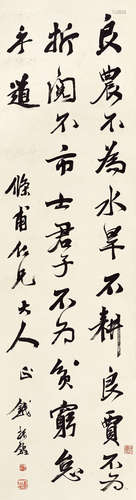 良農不為水旱不耕良賈不為
折閱不市士君子不為貧窮怠
乎道
甫仁兄大人正 錢振